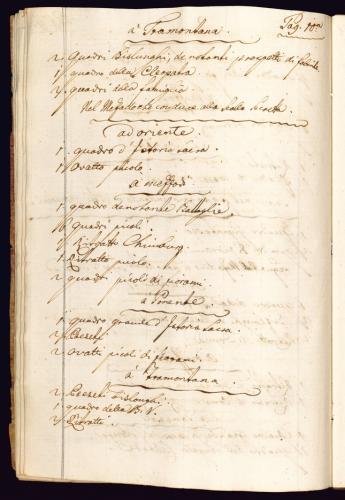 à Tramontana. Pag. 10.
2. Quadri Bislunghi, denotanti prospetti di
1 quadro della Cleopatra
2 quadri della famiglia
Nel che conduce alla Scala Secreta
ad oriente.
1. quadro d'Istoria Sacra
1 Ovatto picolo.
à mezzodì
1 quadro denotante Battaglie
6 quadri picoli
Ritratti
1 Ritratto picolo.
2 quadri picoli di fiorami.
à Ponente.
1 quadro grande d'Istoria Sacra
2
2 Ovatti picoli di fiorami.
à Tramontana.
2. Bislonghi.
1. quadro della B. V.
2 Ritratti.